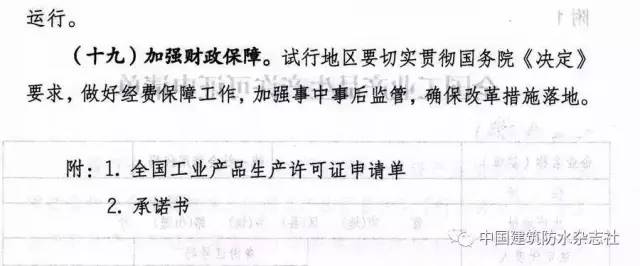 运行。
（十九）加强财政保障。试行地区要切实贯彻国务院《决定》
要求，做好经费保障工作，加强事中事后监管，确保改革措施落地。
附：1. 全国工业产品生产许可证申请单
2. 承诺书
中国建筑防水杂志社